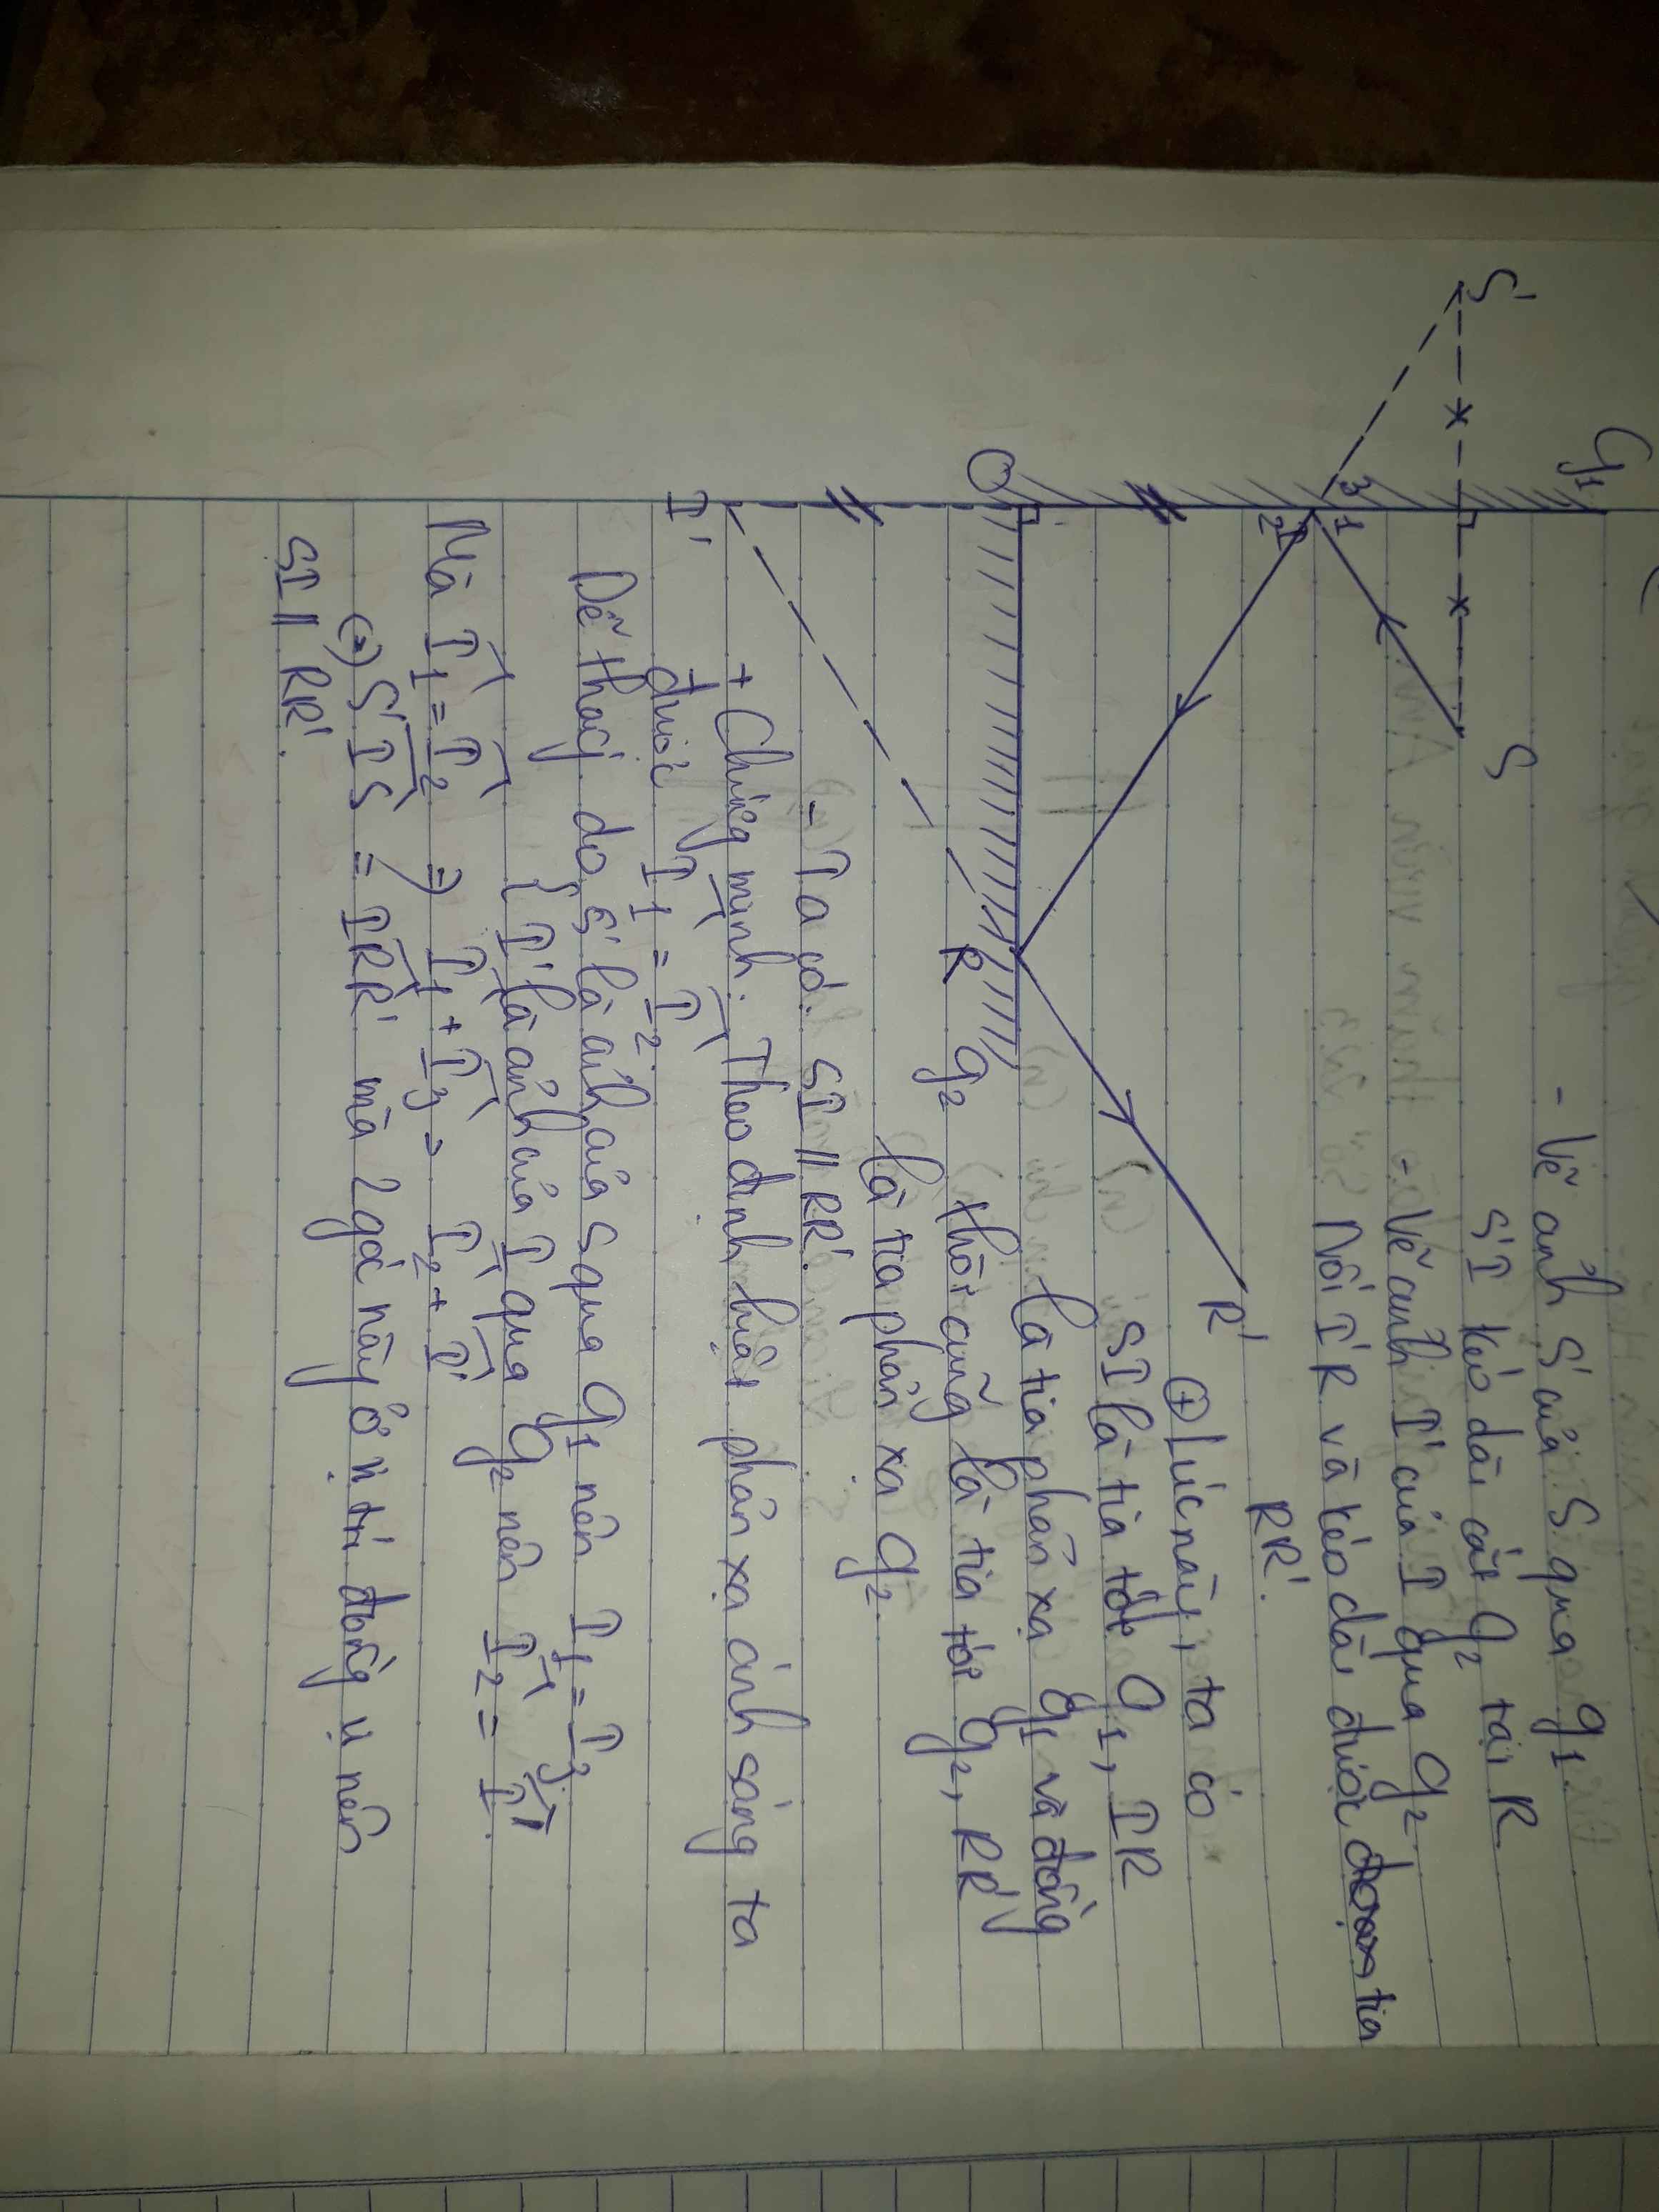 G1
S'
S
3
1
I
2
O
I'
R
G2
R'
- Vẽ ảnh S' của S qua g1.
S'I kéo dài cắt g2 tại R
- Vẽ ảnh I' của I qua g2
Nối I'R và kéo dài được tia
RR'.
⊕ Lúc này, ta có
SI là tia tới G1, IR
là tia phản xạ g1 và đồng
thời cũng là tia tới g2, RR'
là tia phản xạ g2.
- Ta có: SI // RR'.
+ Chứng minh: Theo định luật phản xạ ánh sáng ta
được Î1 = Î2
Dễ thấy do S' là ảnh của S qua g1 nên Î1 = Î3
{ I' là ảnh của I qua g2 nên Î2 = Î'.
Mà Î1 = Î2 => Î1 + Î3 = Î2 + Î'
(=) S'IS = IRR' mà 2 góc này ở vị trí đồng vị nên
SI // RR'.